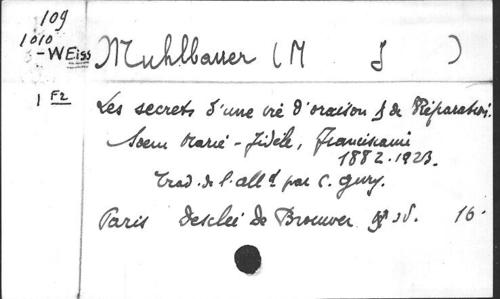 109
1010
-WEiss
Muhlbauer (M J )
1 F2
Les secrets d'une vie d'oraison & de Réparation.
Soeur Marie-Fidèle, Franciscaine
1882-1923.
trad. de l'alld par C. Gury.
Paris Desclée De Brouwer 16-